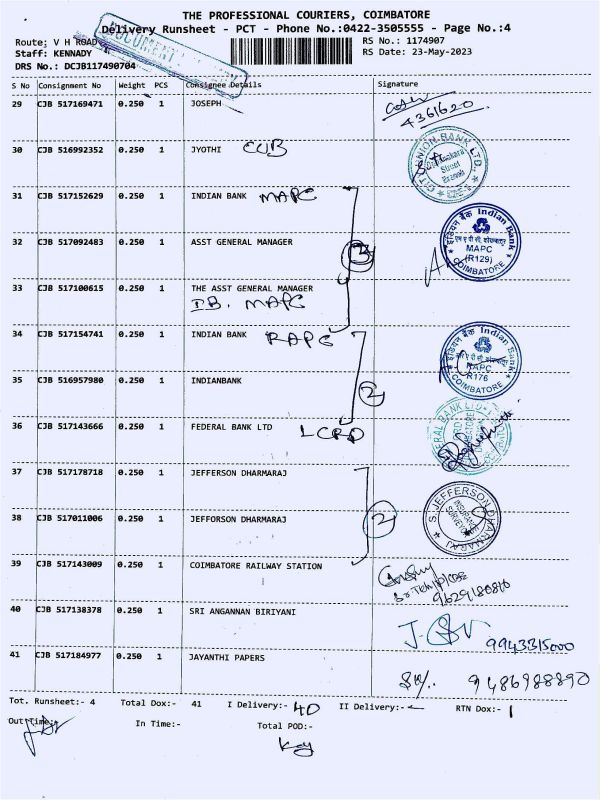 THE PROFESSIONAL COURIERS, COIMBATORE
Delivery Runsheet - PCT - Phone No.:0422-3505555 - Page No.:4
Route: V H ROAD
RS No.: 1174907
Staff: KENNADY
RS Date: 23-May-2023
DRS No.: DCJB117490704
DOCUMENT
S No Consignment No Weight PCS Consignee Details Signature
29 CJB 517169471 0.250 1 JOSEPH
4361620
30 CJB 516992352 0.250 1 JYOTHI CUB
CITY UNION BANK LTD.
Street
31 CJB 517152629 0.250 1 INDIAN BANK MAPC
इंडियन बैंक Indian Bank
MAPC
(R129)
COIMBATORE
32 CJB 517092483 0.250 1 ASST GENERAL MANAGER
3
33 CJB 517100615 0.250 1 THE ASST GENERAL MANAGER
IB. MAPC
34 CJB 517154741 0.250 1 INDIAN BANK RAPC
इंडियन बैंक Indian Bank
R176
COIMBATORE
35 CJB 516957980 0.250 1 INDIANBANK
2
36 CJB 517143666 0.250 1 FEDERAL BANK LTD LCRD
37 CJB 517178718 0.250 1 JEFFERSON DHARMARAJ
S. JEFFERSON DHARMARAJ
INSURANCE
SURVEYOR
38 CJB 517011006 0.250 1 JEFFORSON DHARMARAJ
2
39 CJB 517143009 0.250 1 COIMBATORE RAILWAY STATION
40 CJB 517138378 0.250 1 SRI ANGANNAN BIRIYANI
9943315000
41 CJB 517184977 0.250 1 JAYANTHI PAPERS
9486988890
Tot. Runsheet:- 4 Total Dox:- 41 I Delivery:- 40 II Delivery:- RTN Dox:- 1
Out Time:- In Time:- Total POD:-